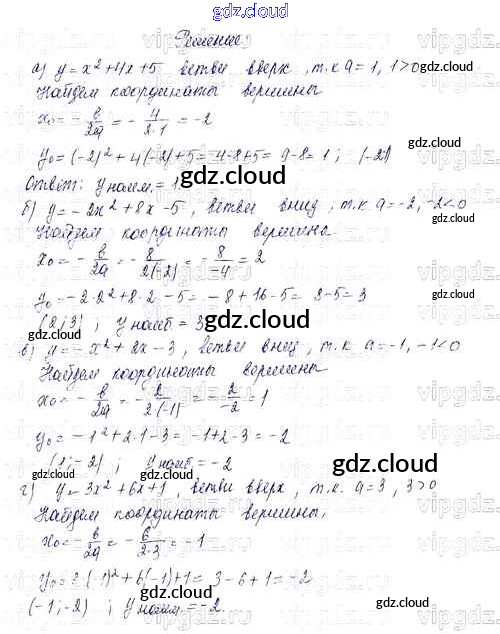 gdz.cloud
Решение:
а) y = x² + 4x + 5 ветви вверх, т.к a = 1, 1 > 0
Найдем координаты вершины
x₀ = - в/2a = - 4/2·1 = -2
y₀ = (-2)² + 4(-2) + 5 = 4-8+5 = 9-8 = 1; (-2;1)
Ответ: y наим. = 1
gdz.cloud
б) y = -2x² + 8x - 5, ветви вниз, т.к a = -2, -2 < 0
Найдем координаты вершины
x₀ = - в/2a = - 8/2(-2) = - 8/-4 = 2
y₀ = -2·2² + 8·2 - 5 = -8+16-5 = 8-5 = 3
(2;3); y наиб = 3
gdz.cloud
в) y = -x² + 2x - 3, ветви вниз, т.к a = -1, -1 < 0
Найдем координаты вершины
x₀ = - в/2a = - 2/2(-1) = - 2/-2 = 1
y₀ = -1² + 2·1 - 3 = -1+2-3 = -2
(1;-2); y наиб. = -2
gdz.cloud
г) y = 3x² + 6x + 1, ветви вверх, т.к. a = 3, 3 > 0
Найдем координаты вершины,
x₀ = - в/2a = - 6/2·3 = -1
y₀ = 3(-1)² + 6(-1) + 1 = 3-6+1 = -2
(-1;-2); y наим. = -2
gdz.cloud